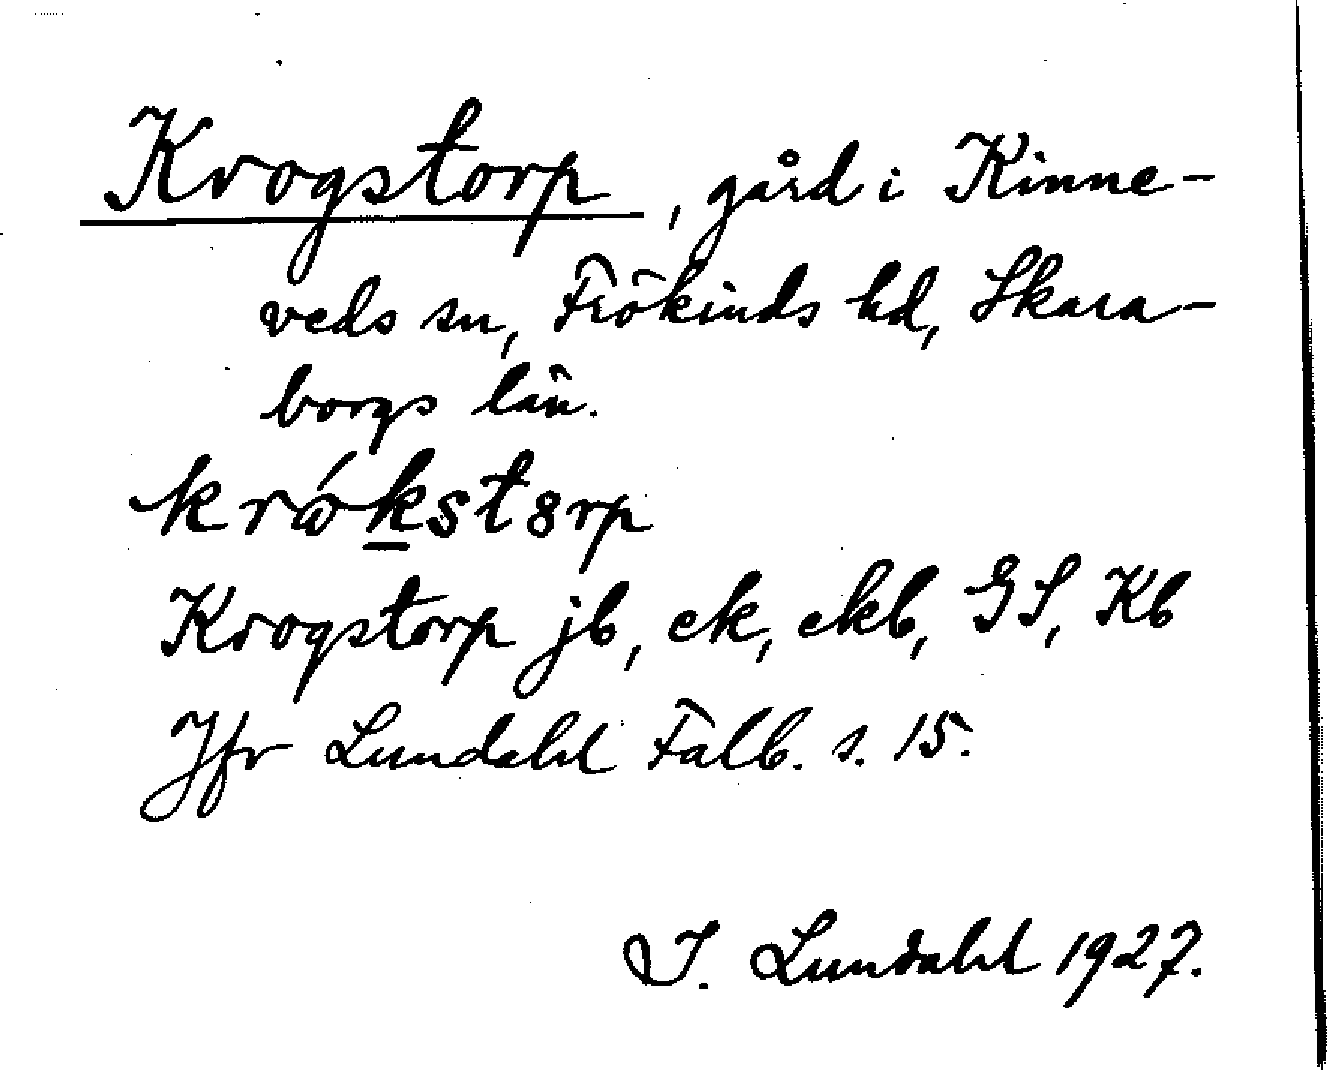 Krogstorp, gård i Kinne-
veds sn, Frökinds hd, Skara-
borgs län.
krókst8rp
Krogstorp jb, ek, ekb, GS, Kb
Jfr Lundahl Falb. s. 15.
I. Lundahl 1927.